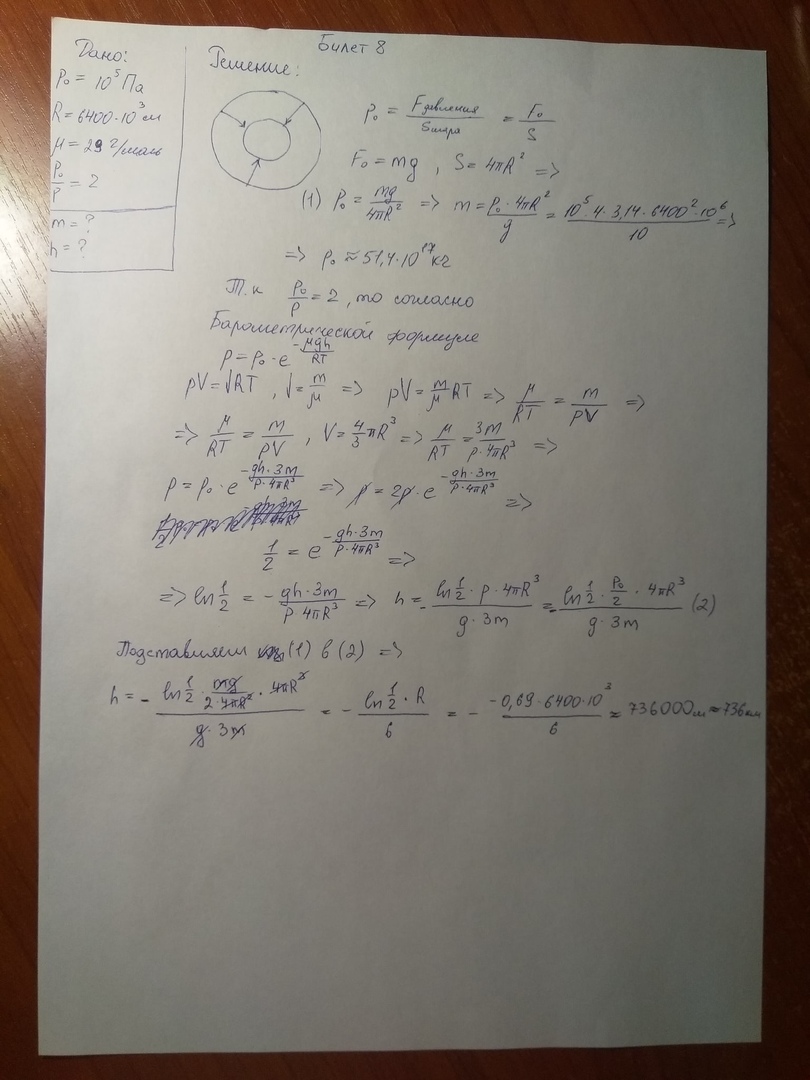 Билет 8
Дано:
P₀ = 10⁵ Па
R = 6400·10³ м
μ = 29 г/моль
P₀/P = 2
m = ?
h = ?
Решение:
P₀ = Fдавления/Sшара = F₀/S
F₀ = mg , S = 4πR² =>
(1) P₀ = mg/4πR² => m = P₀·4πR²/g = 10⁵·4·3,14·6400²·10⁶/10 =>
=> P₀ ≈ 51,4·10¹⁷ кг
Т.к P₀/P = 2 , то согласно
Барометрической формуле
P = P₀·e^(-μgh/RT)
pV = √RT , √ = m/μ => pV = m/μ RT => μ/RT = m/PV =>
=> μ/RT = m/PV , V = 4/3 πR³ => μ/RT = 3m/P·4πR³ =>
P = P₀·e^(-gh·3m/P·4πR³) => P = 2P·e^(-gh·3m/P·4πR³) =>
1/2 = e^(-gh·3m/P·4πR³) =>
=> ln 1/2 = - gh·3m/P·4πR³ => h = - ln 1/2·P·4πR³/g·3m = - ln 1/2·P₀/2·4πR³/g·3m (2)
Подставляем (1) в (2) =>
h = - ln 1/2·mg/2·4πR²·4πR³/g·3m = - ln 1/2·R/6 = - -0,69·6400·10³/6 ≈ 736000м ≈ 736км